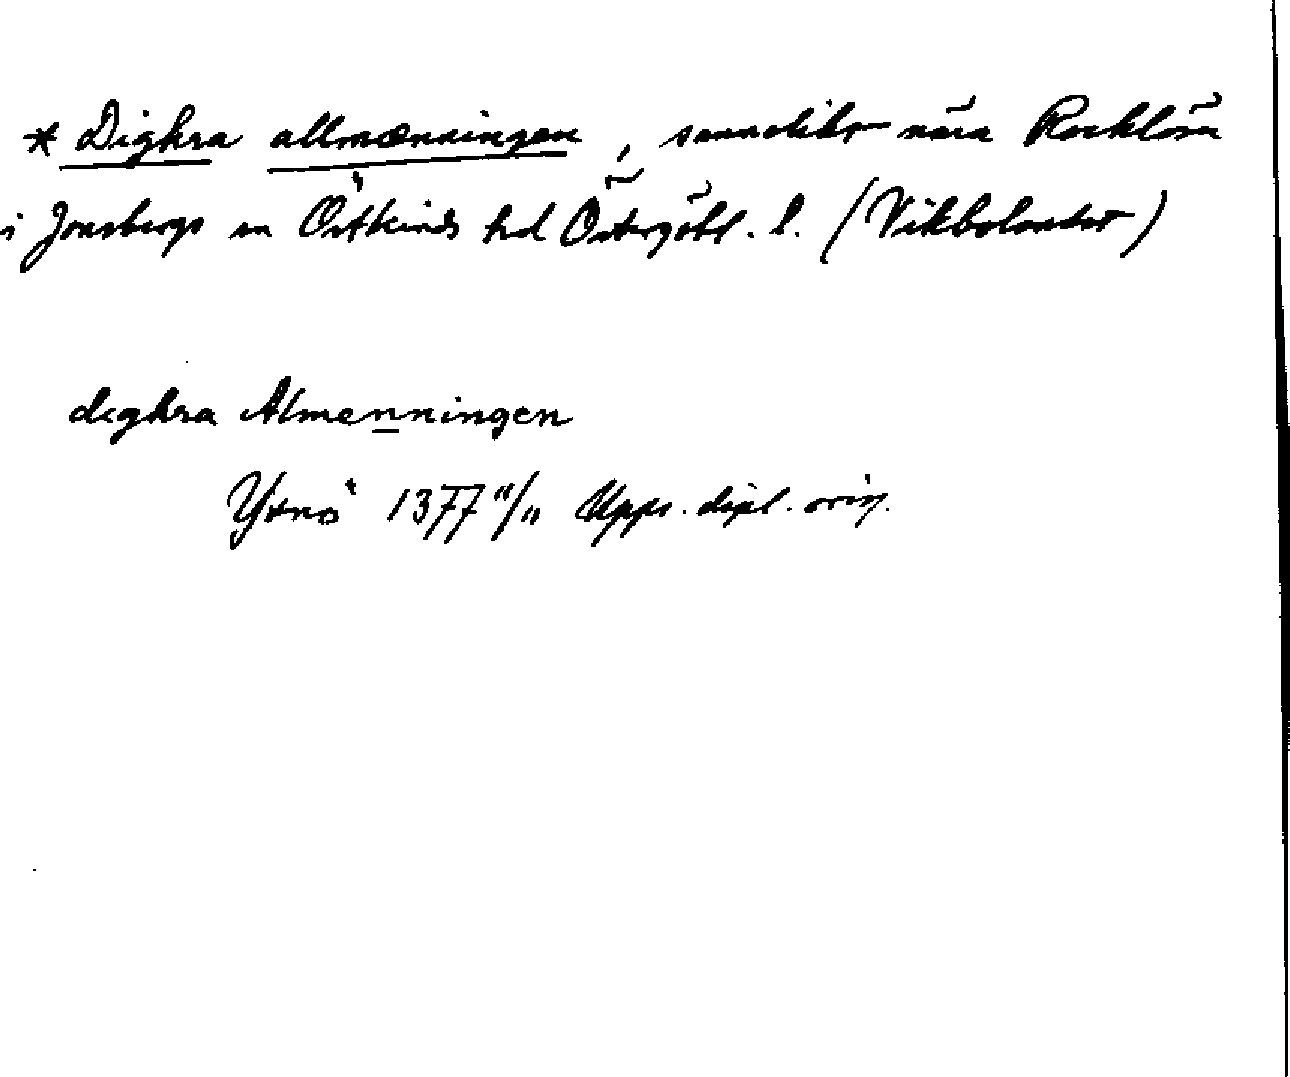 * Dighra allmænningen, sannolikt nära Rocklösa
i Jonsbergs sn Östkinds hd Östergötl. l. (Vikbolandet)
deghra Almenningen
Ytnö 1377 11/11 Upps. dipl. orig.